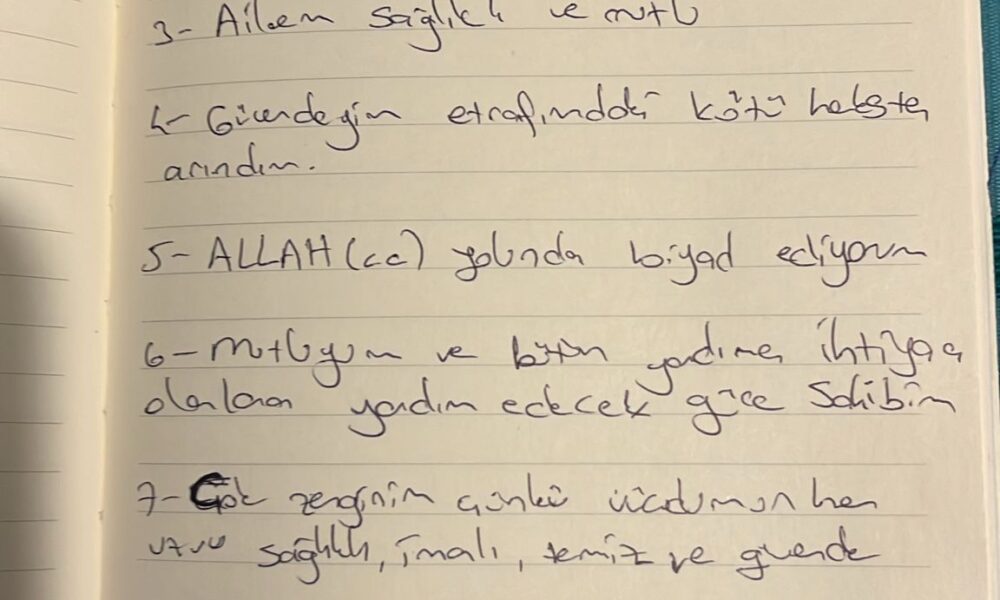 3- Ailem sağlıklı ve mutlu
4- Güvendeyim etrafımdaki kötü herkesten
arındım.
5- ALLAH (cc) yolunda ediyorum
6- mutluyum ve bütün yardıma ihtiyacı
olanlara yardım edecek güce Sahibim
7- Çok zenginim çünkü vücudumun her
uzvu sağlıklı, imalı, temiz ve güvende